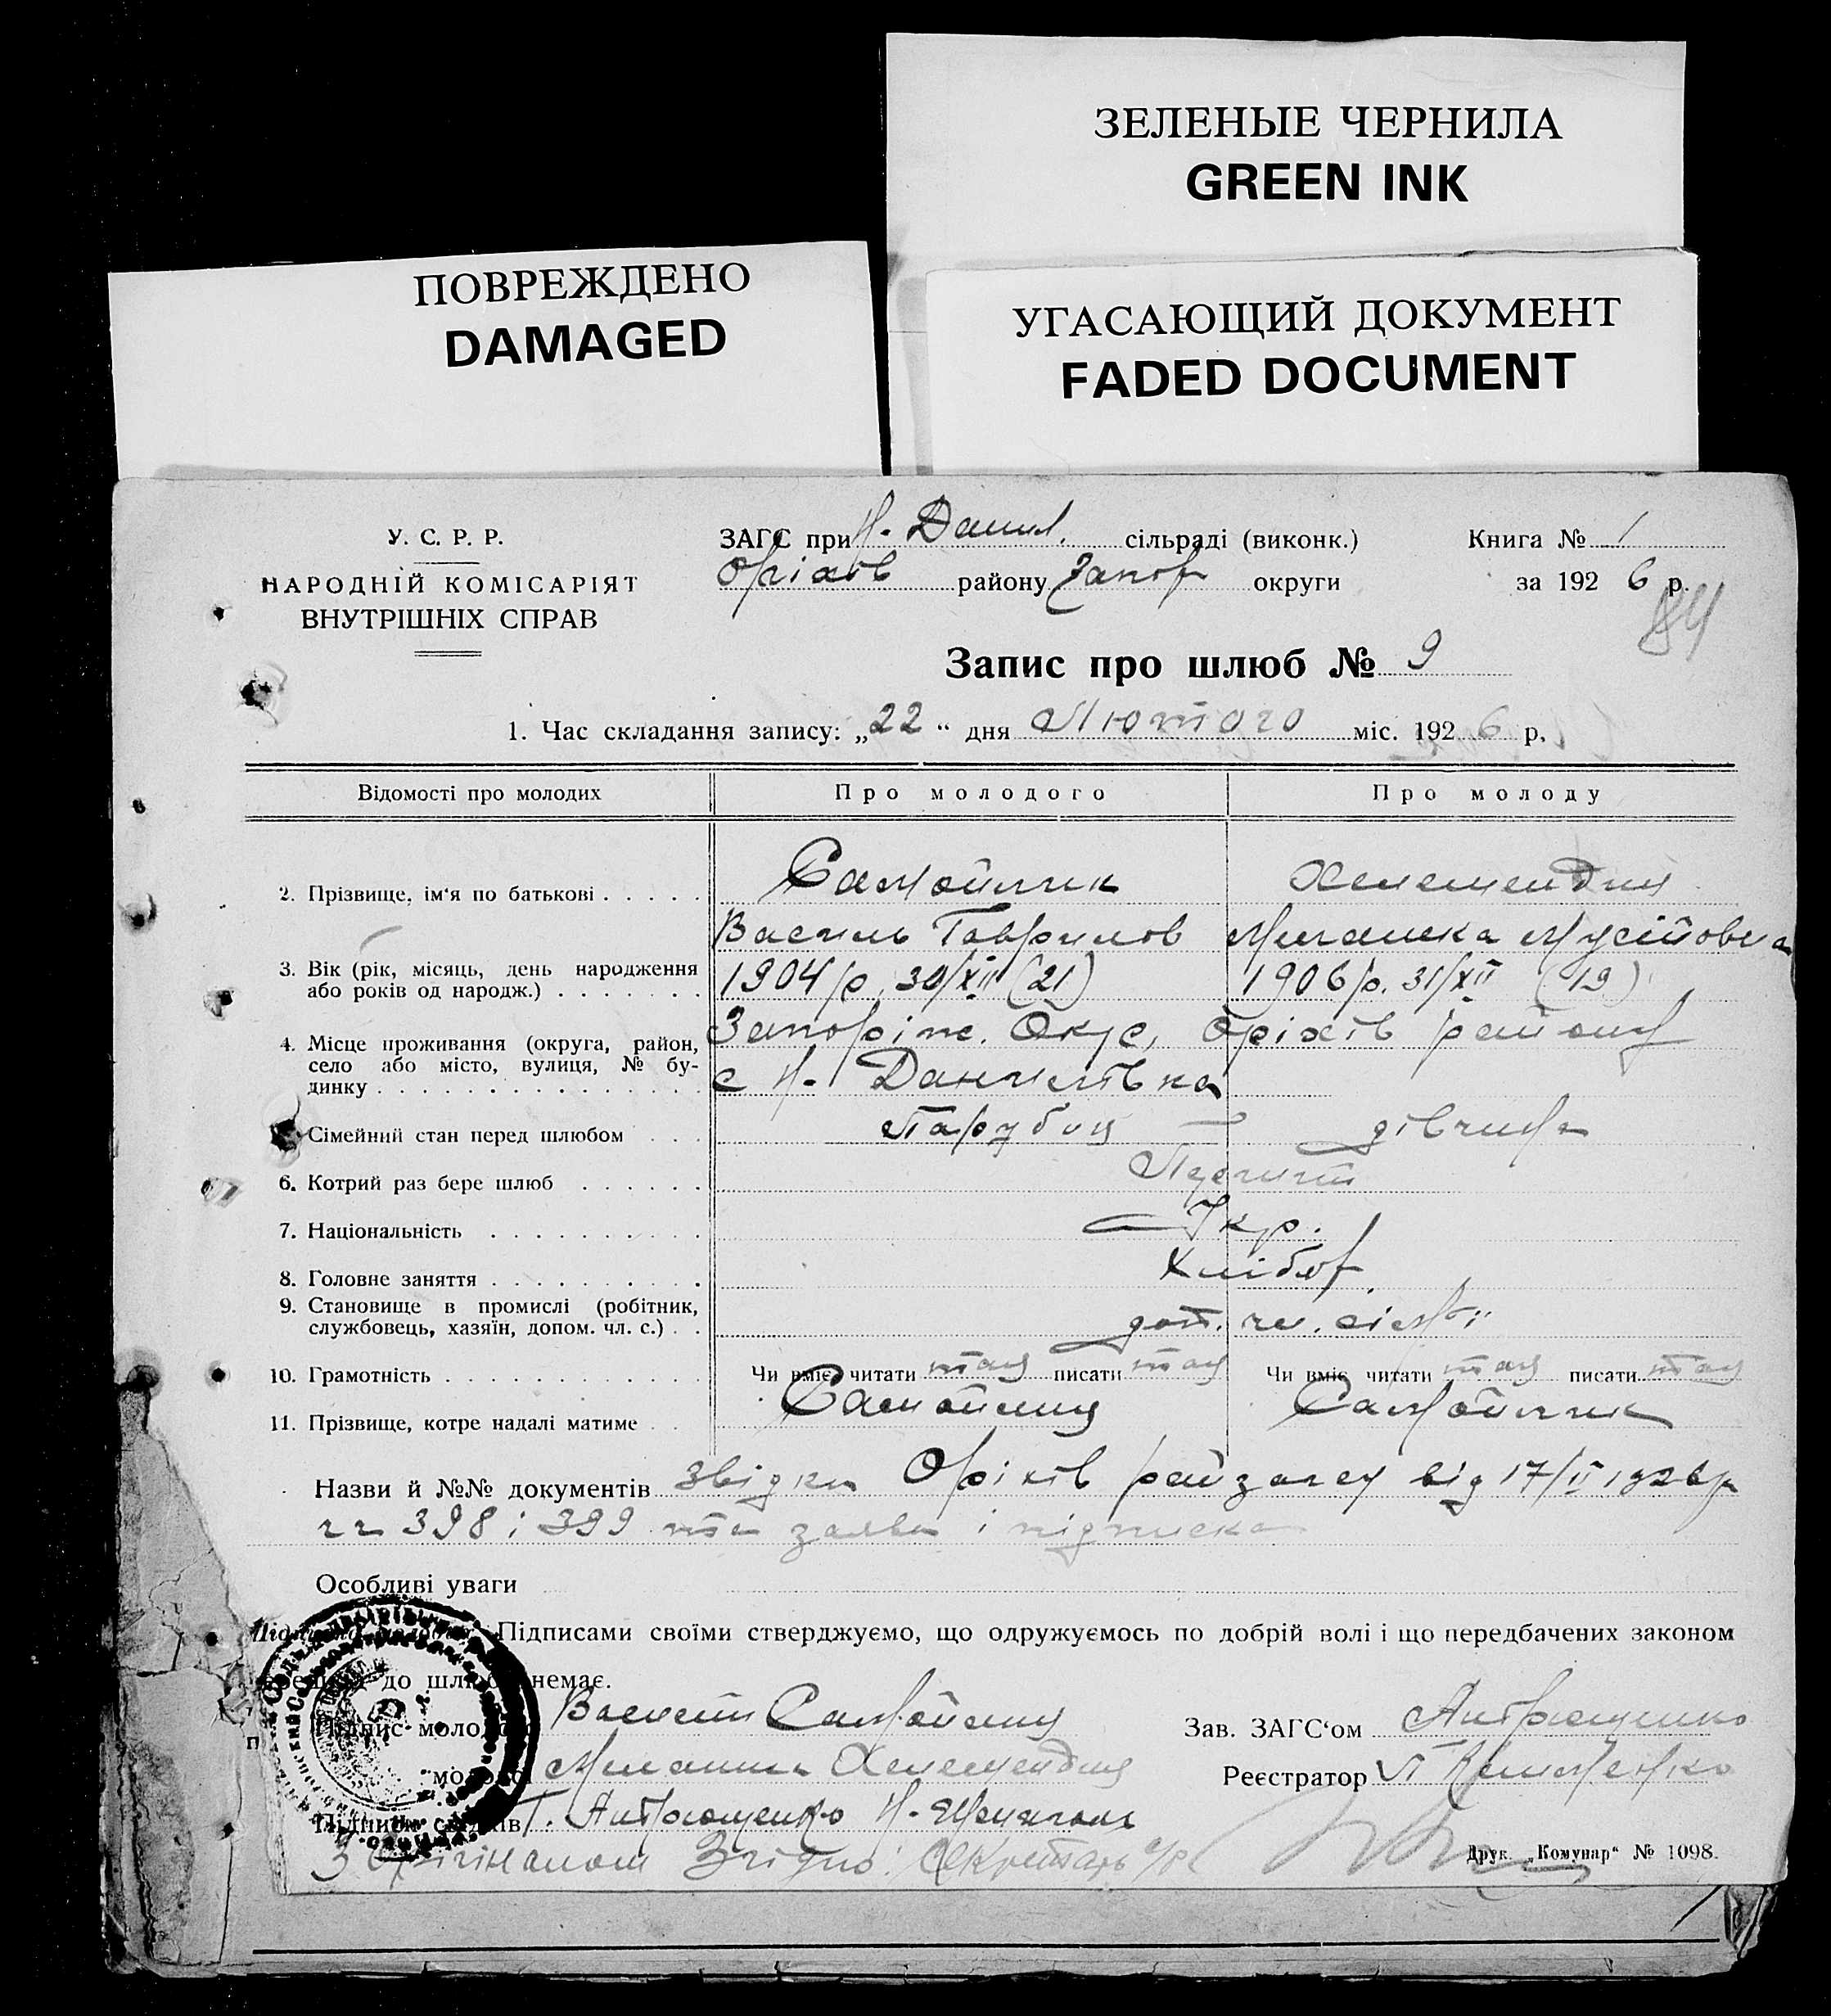 ЗЕЛЕНЫЕ ЧЕРНИЛА
GREEN INK
ПОВРЕЖДЕНО
DAMAGED
УГАСАЮЩИЙ ДОКУМЕНТ
FADED DOCUMENT
У. С. Р. Р.
НАРОДНІЙ КОМІСАРІЯТ
ВНУТРІШНІХ СПРАВ
ЗАГС при Н. Данил. сільраді (виконк.) Книга № 1
Оріхів району Запор округи за 1926 р.
84
Запис про шлюб № 9
1. Час складання запису: „22“ дня Лютого міс. 1926 р,
Відомості про молодих Про молодого Про молоду
2. Прізвище, ім‘я по батькові Самойлик Хелемендик
Василь Гаврилов Мусійовна
3. Вік (рік, місяць, день народження 1904 р. 30/XII (21) 1906 р. 31/XII (19)
або років од народж.)
4. Місце проживання (округа, район, Запоріж. Окрс, Оріхів району
село або місто, вулиця, № бу-
динку с Н. Данилівка
Сімейний стан перед шлюбом Парубок дівчина
6. Котрий раз бере шлюб
7. Національність Укр.
8. Головне заняття Хлібор
9. Становище в промислі (робітник,
службовець, хазяїн, допом. чл. с.) доп. чл. сімї
10. Грамотність Чи вміє читати так писати так Чи вміє читати так писати так
11. Прізвище, котре надалі матиме Самойлик Самойлик
Назви й №№ документів Звідки Оріхів райзагсу від 17/II 1926 р
чч 398 і 399 та заява і підписка
Особливі уваги
Підписами своїми стверджуємо, що одружуємось по добрій волі і що передбачених законом
до шлюбу немає.
Підпис молодого Василь Самойлик Зав. ЗАГС‘ом Антрющенко
молодої Хелемендик Реєстратор Клименко
Підписи свідків Г. Антрющенко Н.
З Орігіналом Згідно: Секретарь с/р Друк. „Комунар“ № 1098.